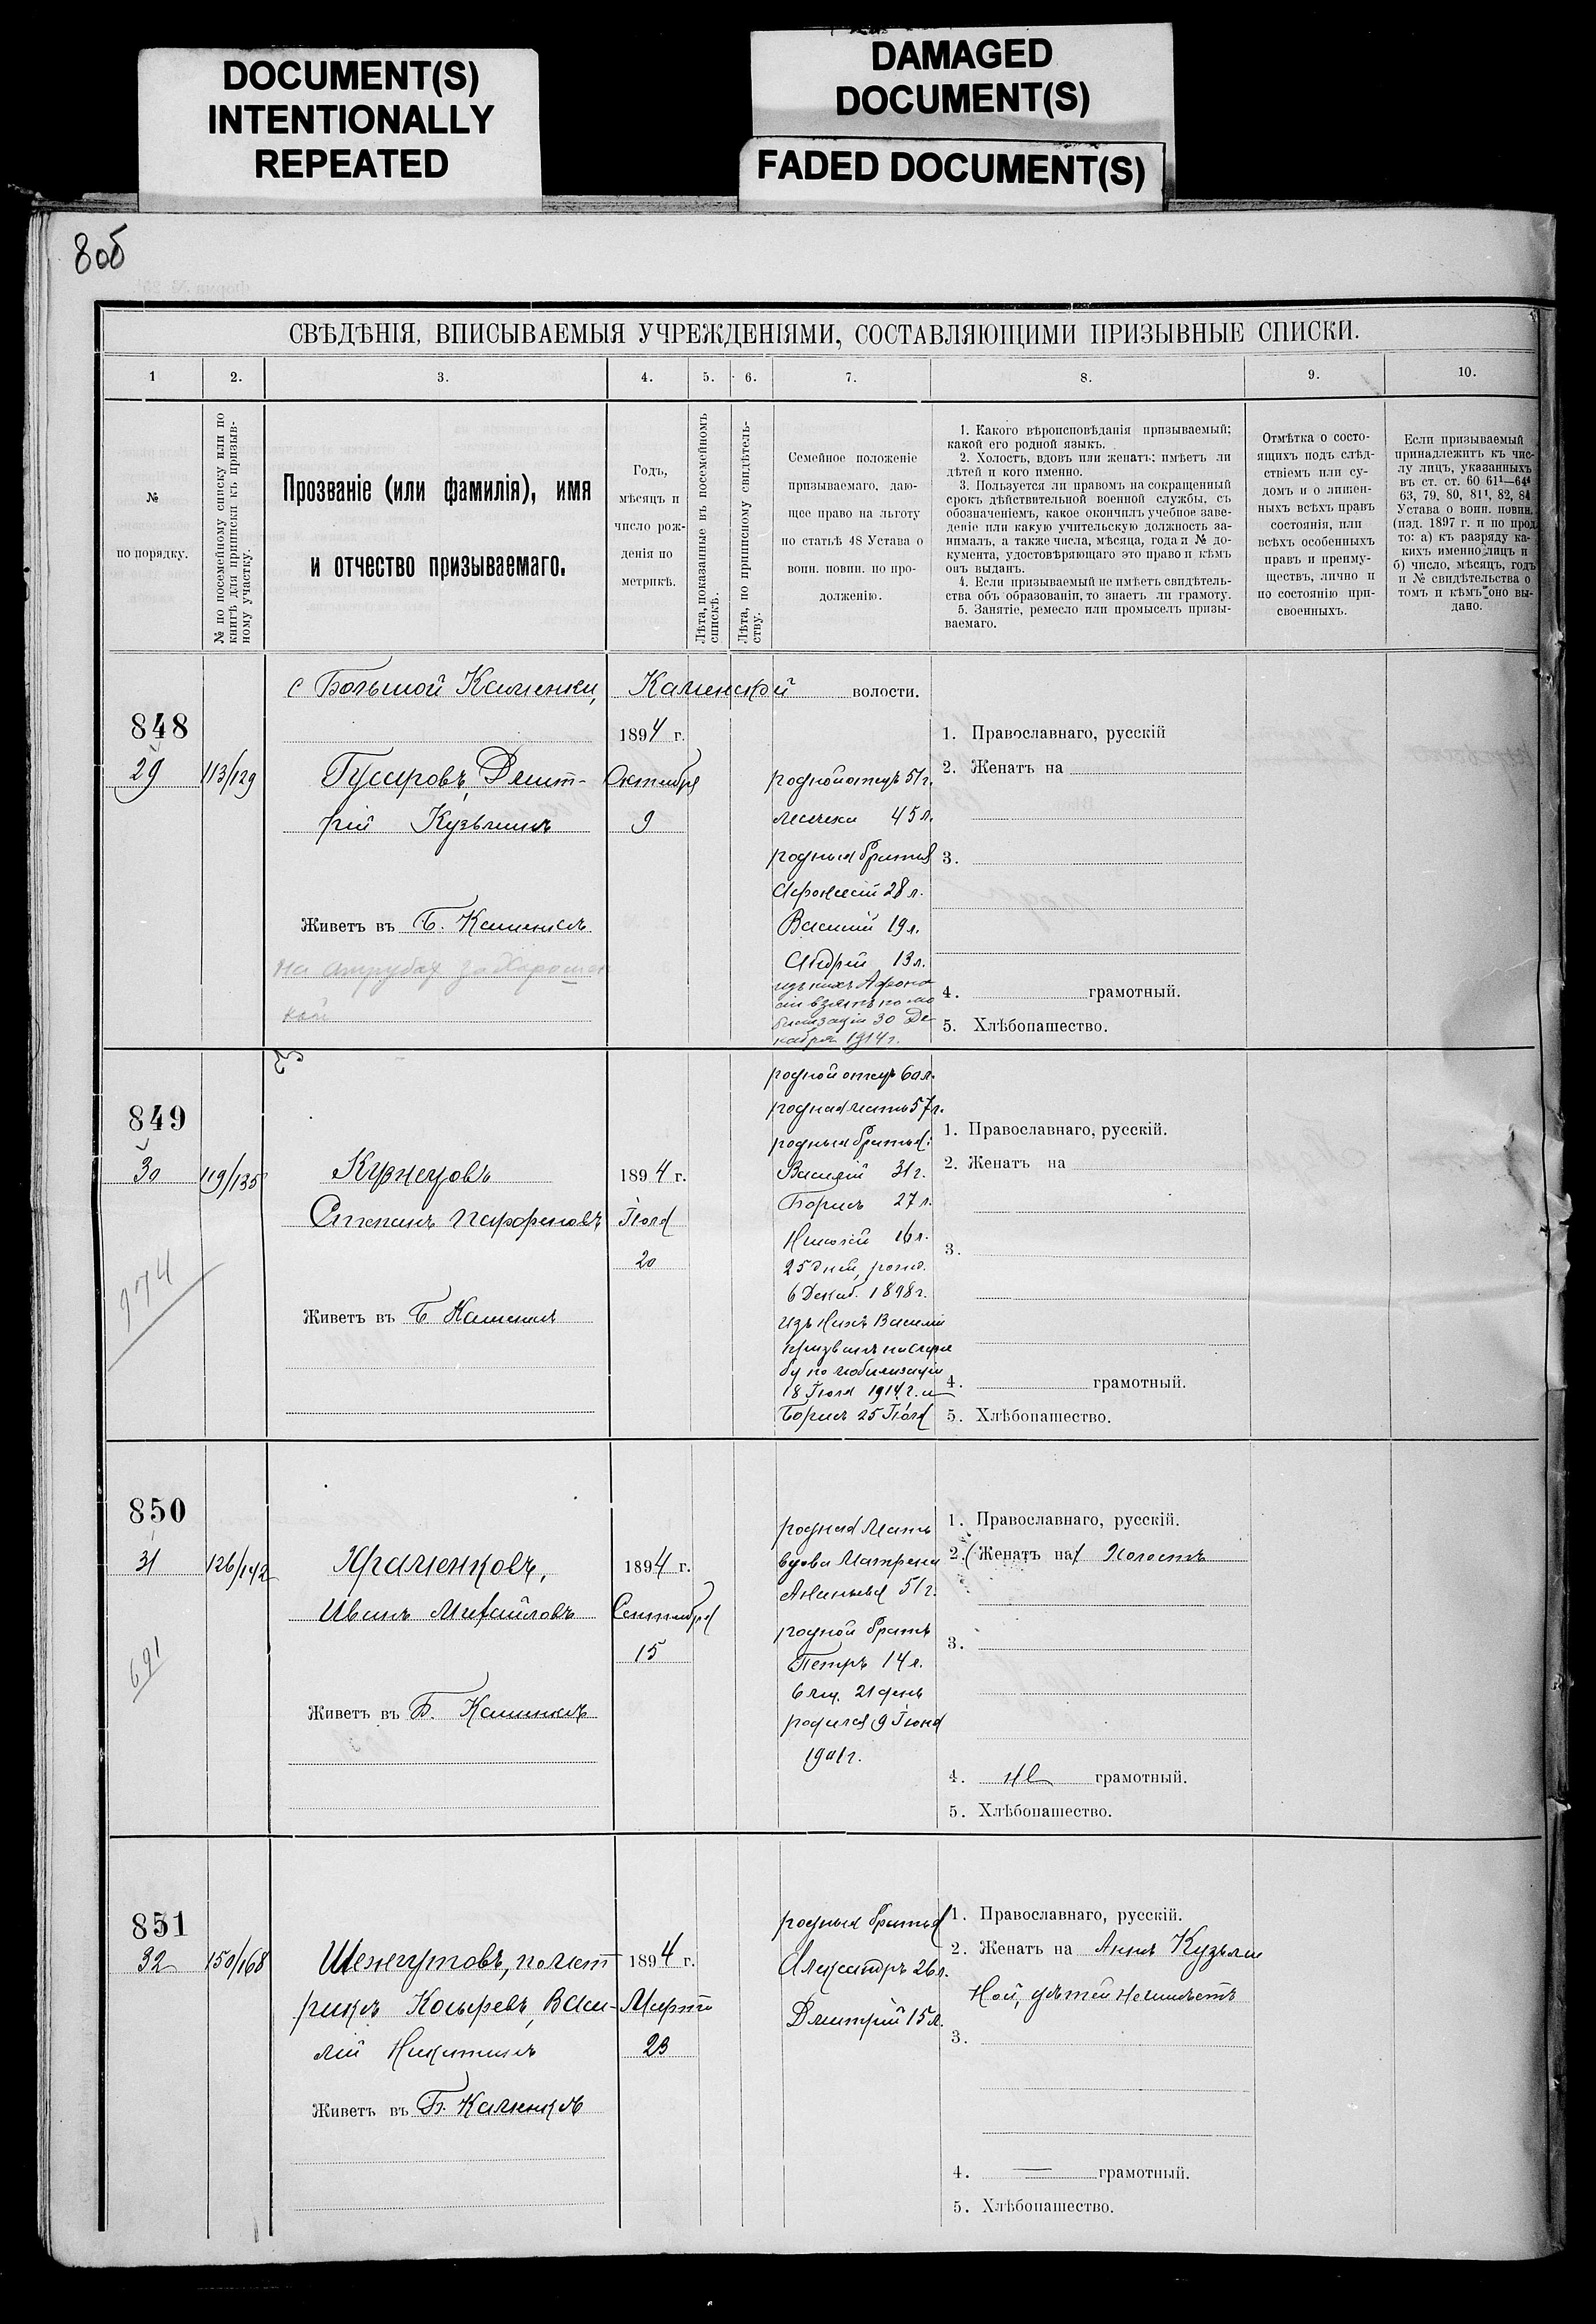 DOCUMENT(S)
INTENTIONALLY
REPEATED
DAMAGED
DOCUMENT(S)
FADED DOCUMENT(S)
80б
СВѢДѢНІЯ, ВПИСЫВАЕМЫЯ УЧРЕЖДЕНІЯМИ, СОСТАВЛЯЮЩИМИ ПРИЗЫВНЫЕ СПИСКИ.
1 2. 3. 4. 5. 6. 7. 8. 9. 10.
№
по порядку.
№ по посемейному списку или по
книгѣ для приписки къ призыв-
ному участку.
Прозваніе (или фамилія), имя
и отчество призываемаго.
Годъ,
мѣсяцъ и
число рож-
денія по
метрикѣ.
Лѣта, показанные въ посемейномъ
спискѣ.
Лѣта, по приписному свидѣтель-
ству.
Семейное положеніе
призываемаго, даю-
щее право на льготу
по статьѣ 48 Устава о
воин. повин. по про-
долженію.
1. Какого вѣроисповѣданія призываемый;
какой его родной языкъ.
2. Холостъ, вдовъ или женатъ; имѣетъ ли
дѣтей и кого именно.
3. Пользуется ли правомъ на сокращенный
срокъ дѣйствительной военной службы, съ
обозначеніемъ, какое окончилъ учебное заве-
деніе или какую учительскую должность за-
нималъ, а также числа, мѣсяца, года и № до-
кумента, удостовѣряющаго это право и кѣмъ
онъ выданъ.
4. Если призываемый не имѣетъ свидѣтель-
ства объ образованіи, то знаетъ ли грамоту.
5. Занятіе, ремесло или промыселъ призы-
ваемаго.
Отмѣтка о состо-
ящихъ подъ слѣд-
ствіемъ или су-
домъ и о лишен-
ныхъ всѣхъ правъ
состоянія, или
всѣхъ особенныхъ
правъ и преиму-
ществъ, лично и
по состоянію при-
своенныхъ.
Если призываемый
принадлежитъ къ чис-
лу лицъ, указанныхъ
въ ст. ст. 60 61¹—64⁴
63, 79, 80, 81¹, 82, 84
Устава о воин. повин.
(изд. 1897 г. и по прод.
то: а) къ разряду ка-
кихъ именно лицъ и
б) число, мѣсяцъ, годъ
и № свидѣтельства о
томъ и кѣмъ оно вы-
дано.
с Большой Каменки, Каменской волости.
848
29
113/129
Гусаровъ, Дмит-
рій Кузьминъ
Живетъ въ Б. Каменкѣ
на отрубах за
кой
1894 г.
Октября
9
родной отецъ 51 г.
мачеха 45 л.
родныя братья
Афонасій 28 л.
Василій 19 л.
Андрей 13 л.
изъ нихъ Афона-
сій взятъ по мо
билизаціи 30 Де-
кабря 1914 г.
1. Православнаго, русскій
2. Женатъ на
3.
4. грамотный.
5. Хлѣбопашество.
849
30
119/135
974
Кузнецовъ
Степанъ Парфеновъ
Живетъ въ Б Каменкѣ
1894 г.
Іюля
20
родной отецъ 60 л.
родная мать 57 л.
родныя братья:
Василій 31 г.
Борисъ 27 л.
Николай 16 л.
25 дней, родил.
6 Декаб. 1898 г.
изъ нихъ Василій
призванъ на служ
бу по мобилизаціи
18 Іюля 1914 г. и
Борисъ 25 Іюля
1. Православнаго, русскій.
2. Женатъ на
3.
4. грамотный.
5. Хлѣбопашество.
850
31
126/142
691
Храменковъ,
Иванъ Михайловъ
Живетъ въ Б. Каменкѣ
1894 г.
Сентября
15
родная Мать
вдова Матрена
Ананьева 51 г.
родной братъ
Петръ 14 л.
6 мц. 21 день
родился 9 Іюня
1901 г.
1. Православнаго, русскій.
2. (Женатъ на) Холостъ
3.
4. не грамотный.
5. Хлѣбопашество.
851
32
150/168
Шенгутовъ, по мет
рикѣ Косыревъ, Васи-
лій Никитинъ
Живетъ въ Б. Каменкѣ
1894 г.
Марта
23
родныя братья
Александръ 26 л.
Дмитрій 15 л.
1. Православнаго, русскій.
2. Женатъ на Аннѣ Кузьми
ной, дѣтей не имѣетъ
3.
4. — грамотный.
5. Хлѣбопашество.